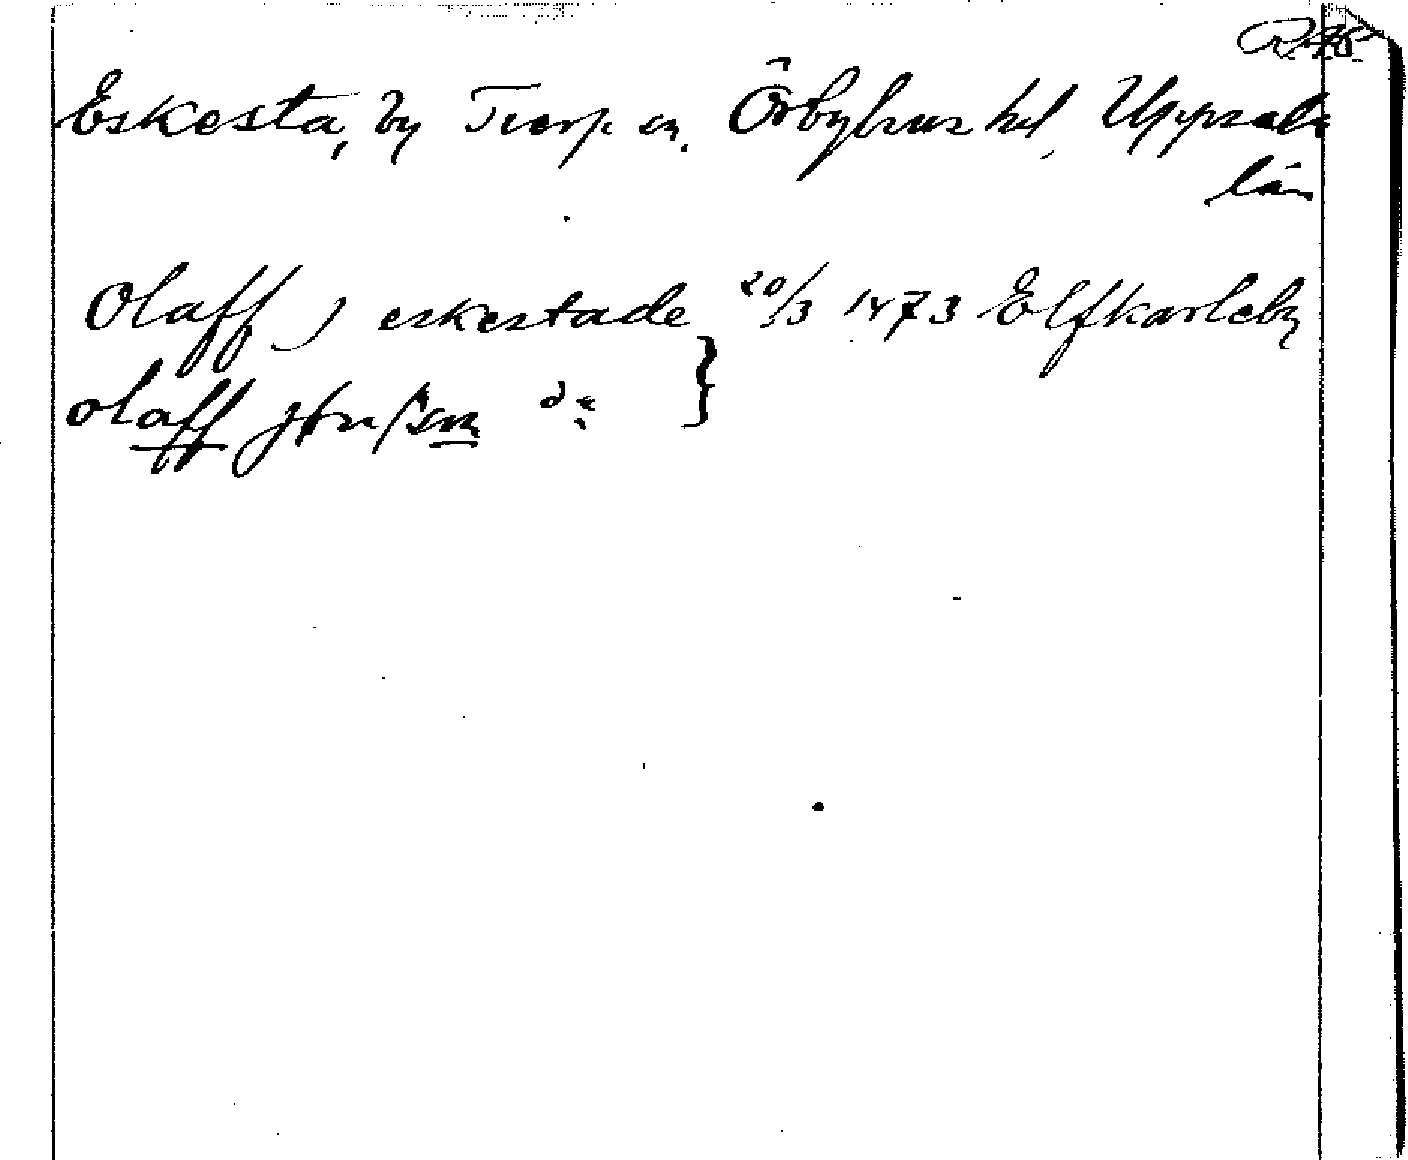 Eskesta, by Tierp sn. Örbyhus hd, Uppsala
län
Olaff j eskestade 20/3 1473 Elfkarleby
olaff jönsson d:o }